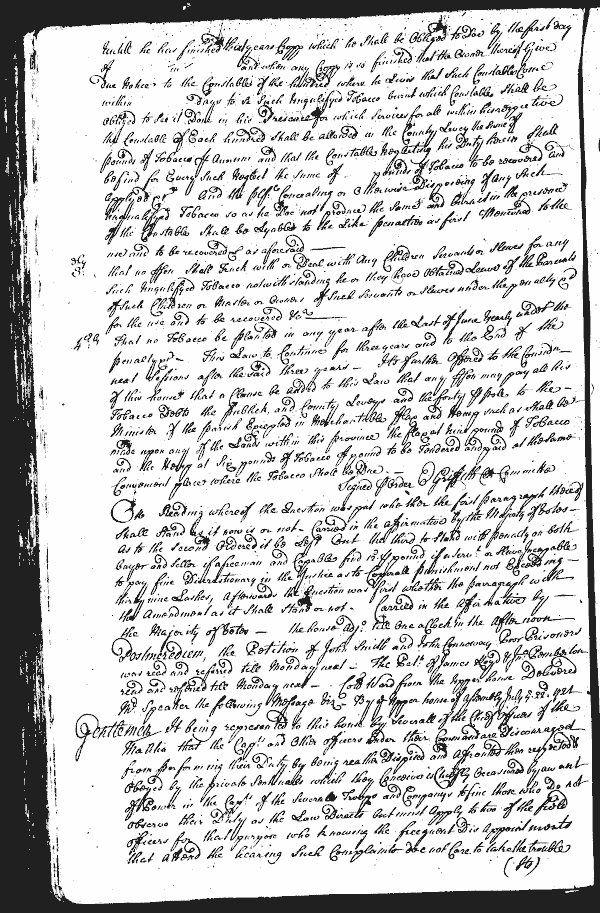 Untill he has finished thirty years Cropp which he Shall be Obliged to Doe by the first day
of in and when any Cropp is so finished that the Owner thereof Give
Due Notice to the Constable of the hundred where he Lives that Such Constable Come
within Days to see Such Unqualifyed Tobacco burnt which Constable Shall be
obliged to See it Done in his Presence for which Services for all within his respective
the Constable of Each hundred Shall be allowed in the County Levey the Sume of
pounds of Tobacco Annum and that the Constable Neglecting his Duty herein Shall
be find for Every Such Neglect the Sume of pounds of Tobacco to be recovered and
Apply'd And the Concealing or Otherwise Disposing of Any Such
Unqualifyed Tobacco so as he Doe not produce the Same and burn it in the presence
of the Constable Shall be Lyable to the Like Penalties as first Mentioned to the
use and to be recovered as aforesaid
3ly that no Shall Truck with or Deal with Any Children Servants or Slaves for any
Such Unqualifyed Tobacco notwithstanding he or they have Obtained Leave of the Parents
of Such Children or Master or Owners of Such Servants or Slaves under the penalty of
for the use and to be recovered
That no Tobacco be planted in any year after the Last of June Yearly under the
penalty This Law to Continue for three years and to the End of the
next Sessions after the Said three years - Its further Offered to the Consideration
of this house that a Clause be added to this Law that any may pay all his
Tobacco Debts the publick and County Leveys and the forty to the
Minister of the Parish Excepted in Merchantable Flax and Hemp such as shall be
made upon any of the Lands within this province the flax at nine pound of Tobacco
and the Hemp at Six pounds of Tobacco pound to be Tendered and paid at the same
Convenient place where the Tobacco Shall be Due
Signed Order Griffith Committee
On Reading whereof the Question was put whether the first Paragraph thereof
Shall Stand as it now is or not - Carried in the affirmative by the Majority of Votes
as to the Second Ordered it be Left Out the third to Stand with penalty on both
buyer and Seller if a freeman and Capable find pound if a Servt or Slave incapable
to pay fine Discretionary in the Justice as to Corporall Punishment not Exceeding
thirty nine Lashes, Afterwards the Question was put whether the paragraph with
the Amendment as it Shall Stand or not - Carried in the Affirmative by
the Majority of Votes - the house Adjs till One a Clock in the Afternoon
Postmeridiem, the Petition of John Smith and John Connoway Poor Prisoners
was read and referred till Monday next - The Petn of James Loyd & Jno Pemberton
read and referred till Monday next - Colo Ward from the Upper house Delivered
Mr Speaker the following Message Viz By the Upper house of Assembly July
Gentlemen It being represented to this house by Severall of the Chief Officers of the
Militia that the Capts and Other officers under their Command are Discouraged
from performing their Duty by being rather Despised and Affronted then respected &
Obeyed by the private Sentinalls which they Conceive is Chiefly Occasioned by a want
of Power in the Capts of the Severall Troops and Companys to fine those who Do not
observe their Duty as the Law Directs but must Apply to two of the field
officers for that purpose who knowing the frequent Disappointments
that attend the hearing Such Complaints doe not Care to take the trouble